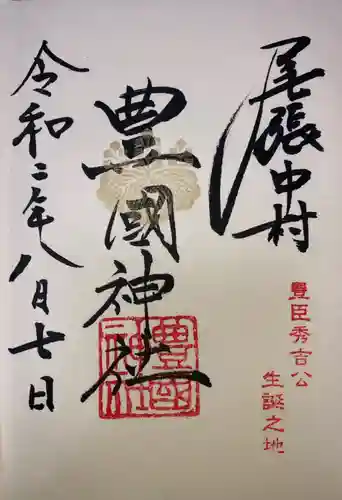 尾張中村
豐臣秀吉公
生誕之地
豊國神社
豊國
神社
令和二年八月七日